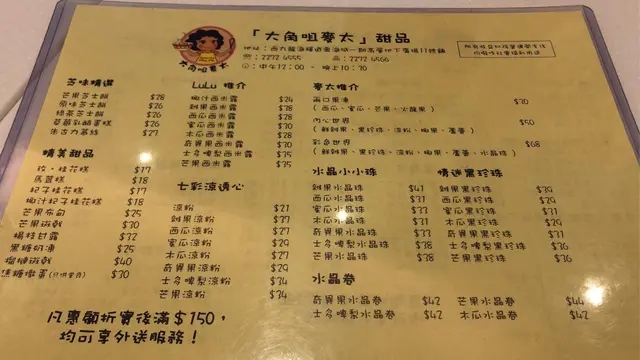 「大角咀麥太」甜品
大角咀麥太
: 2272 6555
: 2272 6566
: 中午12:00 - 晚上10:30
芒味精選
芒果芝士餅 $28
原味芝士餅 $26
綠茶芝士餅 $26
$26
朱古力慕絲 $27
精美甜品
玫瑰桂花糕 $17
馬蹄糕 $18
杞子桂花糕 $17
椰汁杞子桂花糕 $18
芒果布甸 $25
芒果班戟 $30
楊枝甘露 $32
黑糖奶凍 $25
榴槤班戟 $40
焦糖燉蛋 $30
凡惠顧折實後滿$150,
均可享外送服務!
LuLu 推介
椰汁西米露 $24
雜果西米露 $28
西瓜西米露 $28
蜜瓜西米露 $28
木瓜西米露 $28
奇異果西米露 $30
士多啤梨西米露 $35
芒果西米露 $35
七彩涼透心
涼粉 $21
雜果涼粉 $27
西瓜涼粉 $27
蜜瓜涼粉 $29
木瓜涼粉 $27
奇異果涼粉 $29
士多啤梨涼粉 $34
芒果涼粉 $34
麥太推介
$30
( 西瓜、蜜瓜、芒果、火龍果 )
內心世界 $50
( 鮮雜果、黑珍珠、涼粉、椰果、蘆薈 )
彩色世界 $68
( 鮮雜果、黑珍珠、涼粉、椰果、蘆薈、水晶珠 )
水晶小小珠
雜果水晶珠 $41
西瓜水晶珠 $31
蜜瓜水晶珠 $31
木瓜水晶珠 $31
奇異果水晶珠 $33
士多啤梨水晶珠 $38
芒果水晶珠 $38
情迷黑珍珠
雜果黑珍珠 $39
西瓜黑珍珠 $29
蜜瓜黑珍珠 $31
木瓜黑珍珠 $29
奇異果黑珍珠 $31
士多啤梨黑珍珠 $36
芒果黑珍珠 $36
水晶卷
奇異果水晶卷 $42
芒果水晶卷 $44
士多啤梨水晶卷 $42
木瓜水晶卷 $42